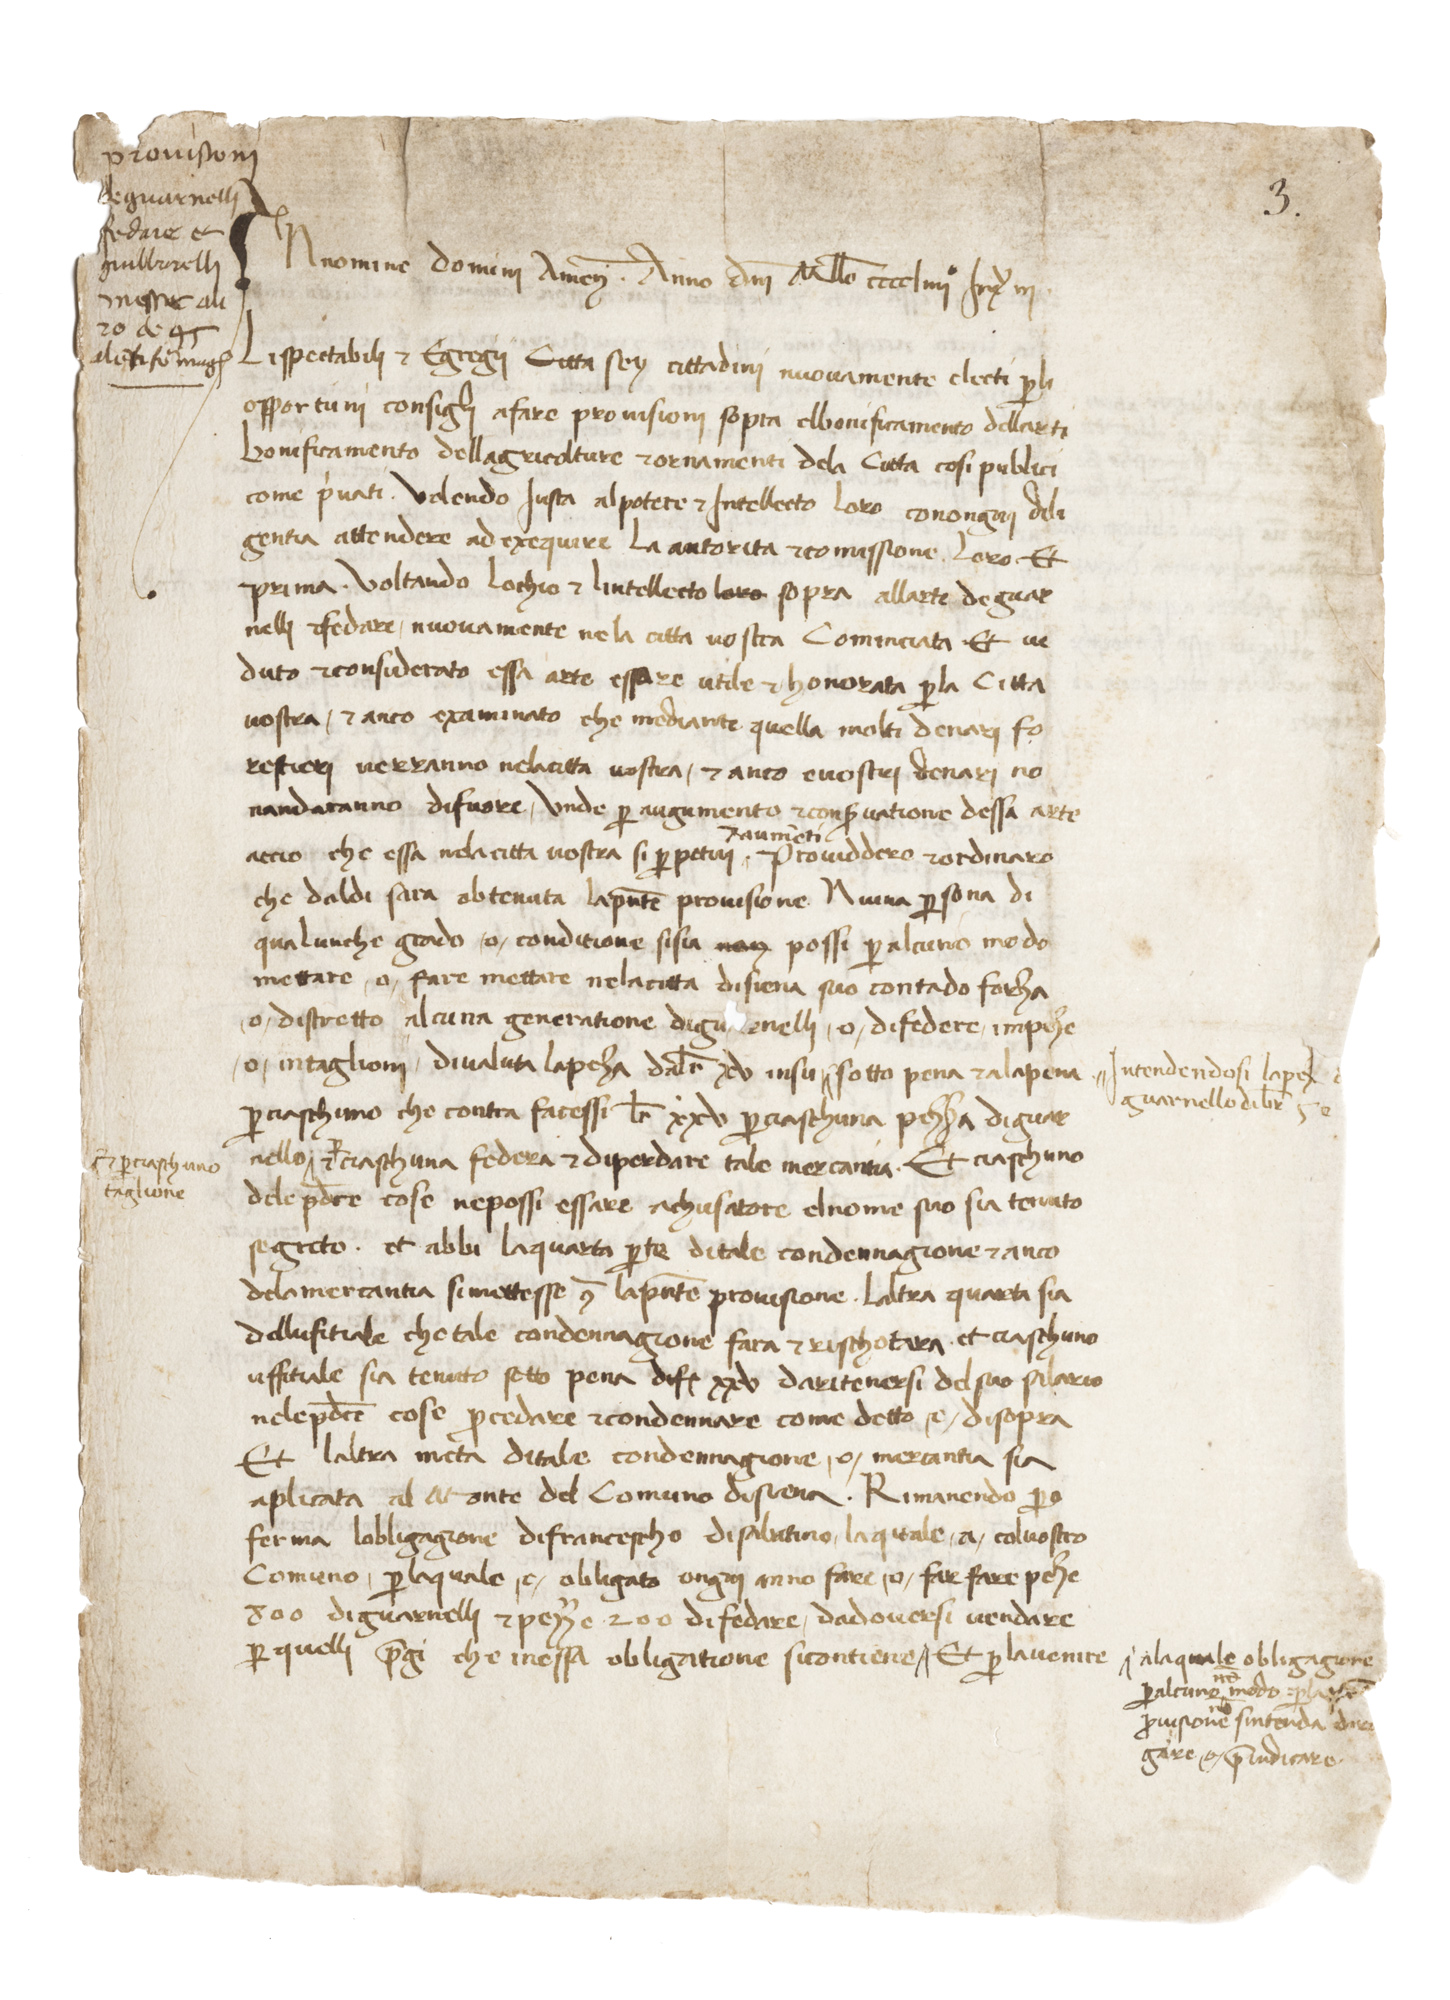 3.
provisioni
de guarnelli
fedare et
In nomine Domini Amen. Anno dni Mllo ccccliiii° Ind. iii
Li spectabili et Egregii Citta sey cittadini nuovamente electi p li
opportuni consigli a fare provisioni sopra el bonificamento dellarti
bonificamento dellagricolture et ornamenti dela Citta cosi publici
come pvati. Volendo Justa al potere et Intellecto loro con ongni dili
gentia attendere ad exequire La autorita et comissione loro. Et
prima. Voltando lochio et lintellecto loro sopra allarte de guar
nelli et fedare, nuovamente ne la citta vostra Cominciata. Et ve
duto et considerato essa arte essare utile et honorata p la Citta
vostra, et anco examinato che mediante quella molti denari fo
restieri verranno nela citta vostra, et anco e vostri denari no
nandaranno di fuore, Unde p augumento et conservatione dessa arte
et aumeti
accio che essa nela citta vostra si p petui. Providdero et ordinaro
che dal di sara obtenuta la pnte provisione Niuna p sona di
qualunche grado, o, conditione si sia non possi p alcuno modo
mettare, o, fare mettare nela citta di siena suo contado forza
o, distretto alcuna generatione di gu nelli, o, di federe, in peze
o, in taglioni, di valuta la peza da lr xv in su, sotto pena et a la pena
Intendendosi la pez
guarnello di lbr
p ciaschuno che contra facessi lr xxv p ciaschuna pezza di guar
nello, et p ciaschuna federa et di perdare tale mercantia. Et ciaschuno
et p ciaschuno
taglione
dele pdcte cose ne possi essare achusatore el nome suo sia tenuto
segreto. et abbi la quarta pte di tale condennagione et anco
dela mercantia si mettesse contra la pnte provisione. Laltra quarta sia
dellufitiale che tale condennagione fara et rischotara. et ciaschuno
uffitiale sia tenuto sotto pena di f xxv da ritenersi del suo salario
nele pdcte cose pcedare et condennare come detto, e, di sopra
Et laltra meta di tale condennagione, o, mercantia sia
aplicata al Monte del Comuno di siena. Rimanendo po
ferma lobligagione di francescho di salutino, la quale, a, col vostro
Comuno, p la quale, e, obligato ongni anno fare, o, far fare peze
800 di guarnelli et pezze 200 di fedare, da doversi vendare
p quelli pregi che in essa obligatione si contiene, Et p lavenire
a la quale obligagione
p alcuno modo p la
pvisione sintenda
gare, o, preiudicare.